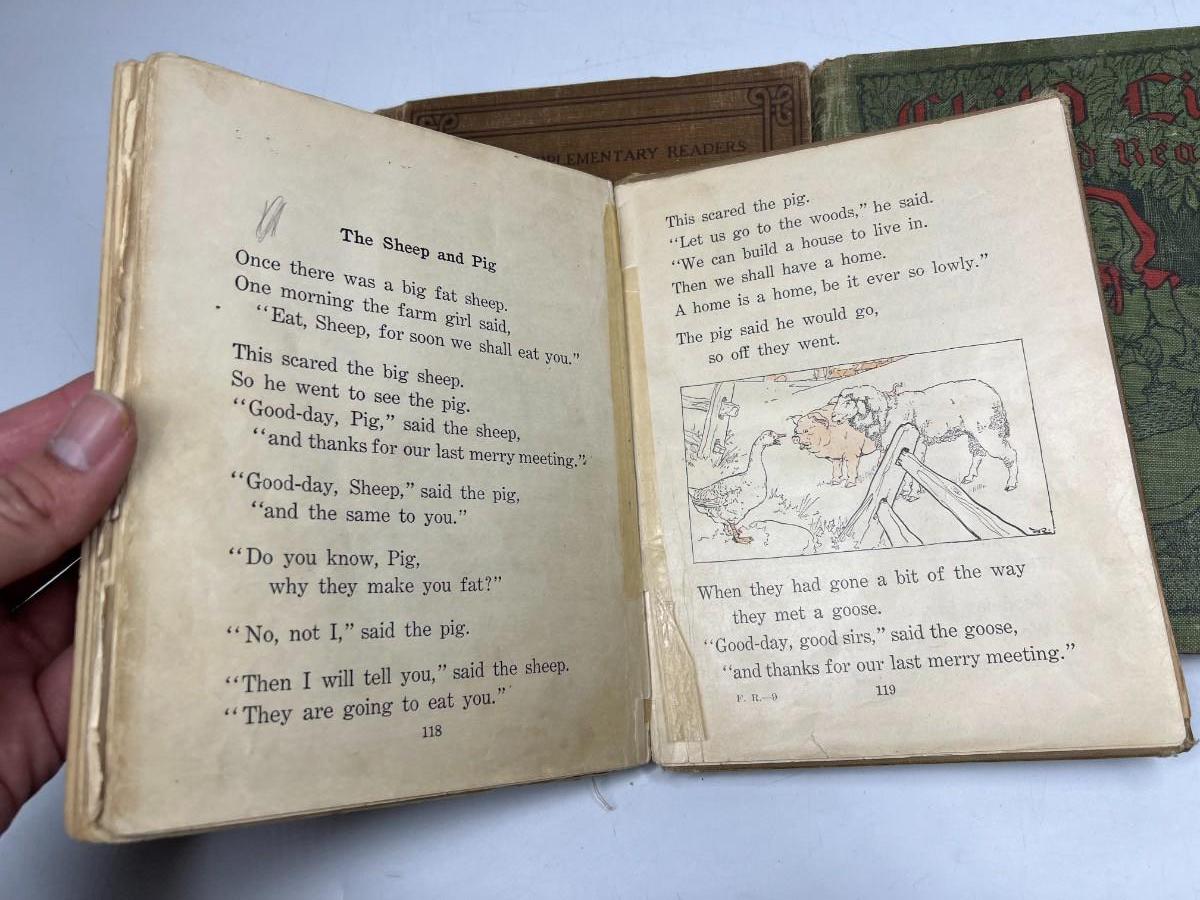 The Sheep and Pig
Once there was a big fat sheep.
One morning the farm girl said,
“Eat, Sheep, for soon we shall eat you.”
This scared the big sheep.
So he went to see the pig.
“Good-day, Pig,” said the sheep,
“and thanks for our last merry meeting.”
“Good-day, Sheep,” said the pig,
“and the same to you.”
“Do you know, Pig,
why they make you fat?”
“No, not I,” said the pig.
“Then I will tell you,” said the sheep.
“They are going to eat you.”
118
This scared the pig.
“Let us go to the woods,” he said.
“We can build a house to live in.
Then we shall have a home.
A home is a home, be it ever so lowly.”
The pig said he would go,
so off they went.
When they had gone a bit of the way
they met a goose.
“Good-day, good sirs,” said the goose,
“and thanks for our last merry meeting.”
F. R.—9
119
READERS
Child